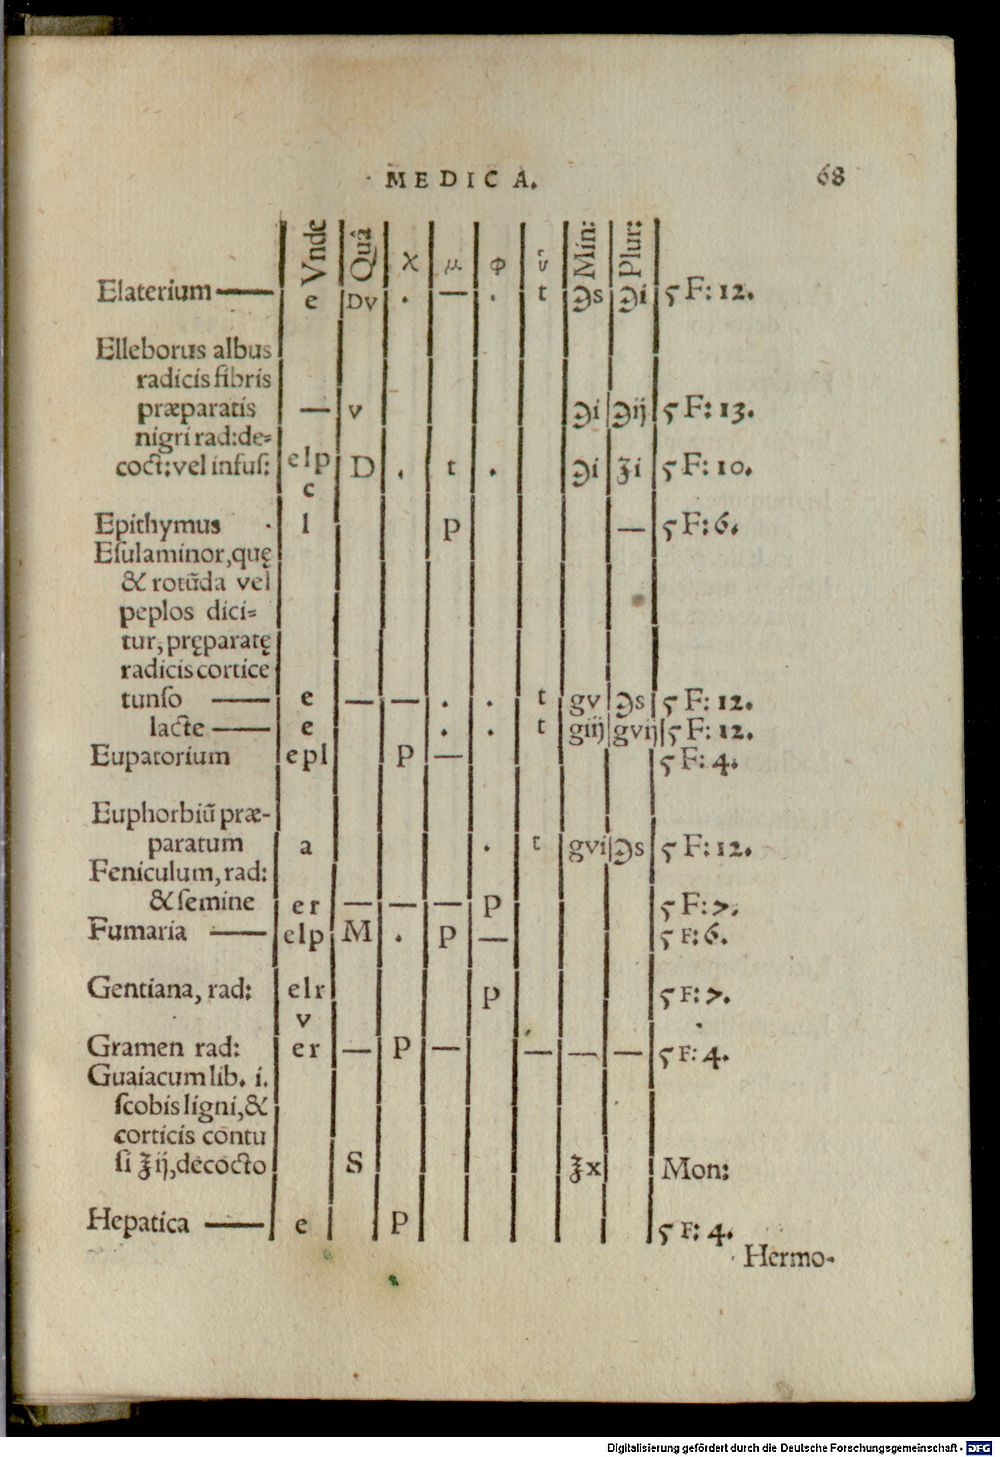 MEDICA. 68
Vnde Quâ χ μ φ ύ Min: Plur:
Elaterium — e Dv . — . t ℈s ℈i ς F: 12.
Elleborus albus
radicis fibris
præparatis — v ℈i ℈ij ς F: 13.
nigri rad: de=
coct: vel infus: elp D . t . ℈i ʒi ς F: 10.
c
Epithymus l p — ς F: 6.
Esula minor, quę
& rotūda vel
peplos dici=
tur, pręparatę
radicis cortice
tunso — e — — . . t gv ℈s ς F: 12.
lacte — e . . t giij gvij ς F: 12.
Eupatorium epl P — ς F: 4.
Euphorbiū præ-
paratum a . t gvi ℈s ς F: 12.
Feniculum, rad:
& semine er — — — P ς F: 7.
Fumaria — elp M . P — ς F: 6.
Gentiana, rad: elr P ς F: 7.
v
Gramen rad: er — P — — — — ς F: 4.
Guaiacum lib. i.
scobis ligni, &
corticis contu
si ʒij, decocto S ʒx Mon:
Hepatica — e P ς F: 4.
Hermo-
Digitalisierung gefördert durch die Deutsche Forschungsgemeinschaft - DFG